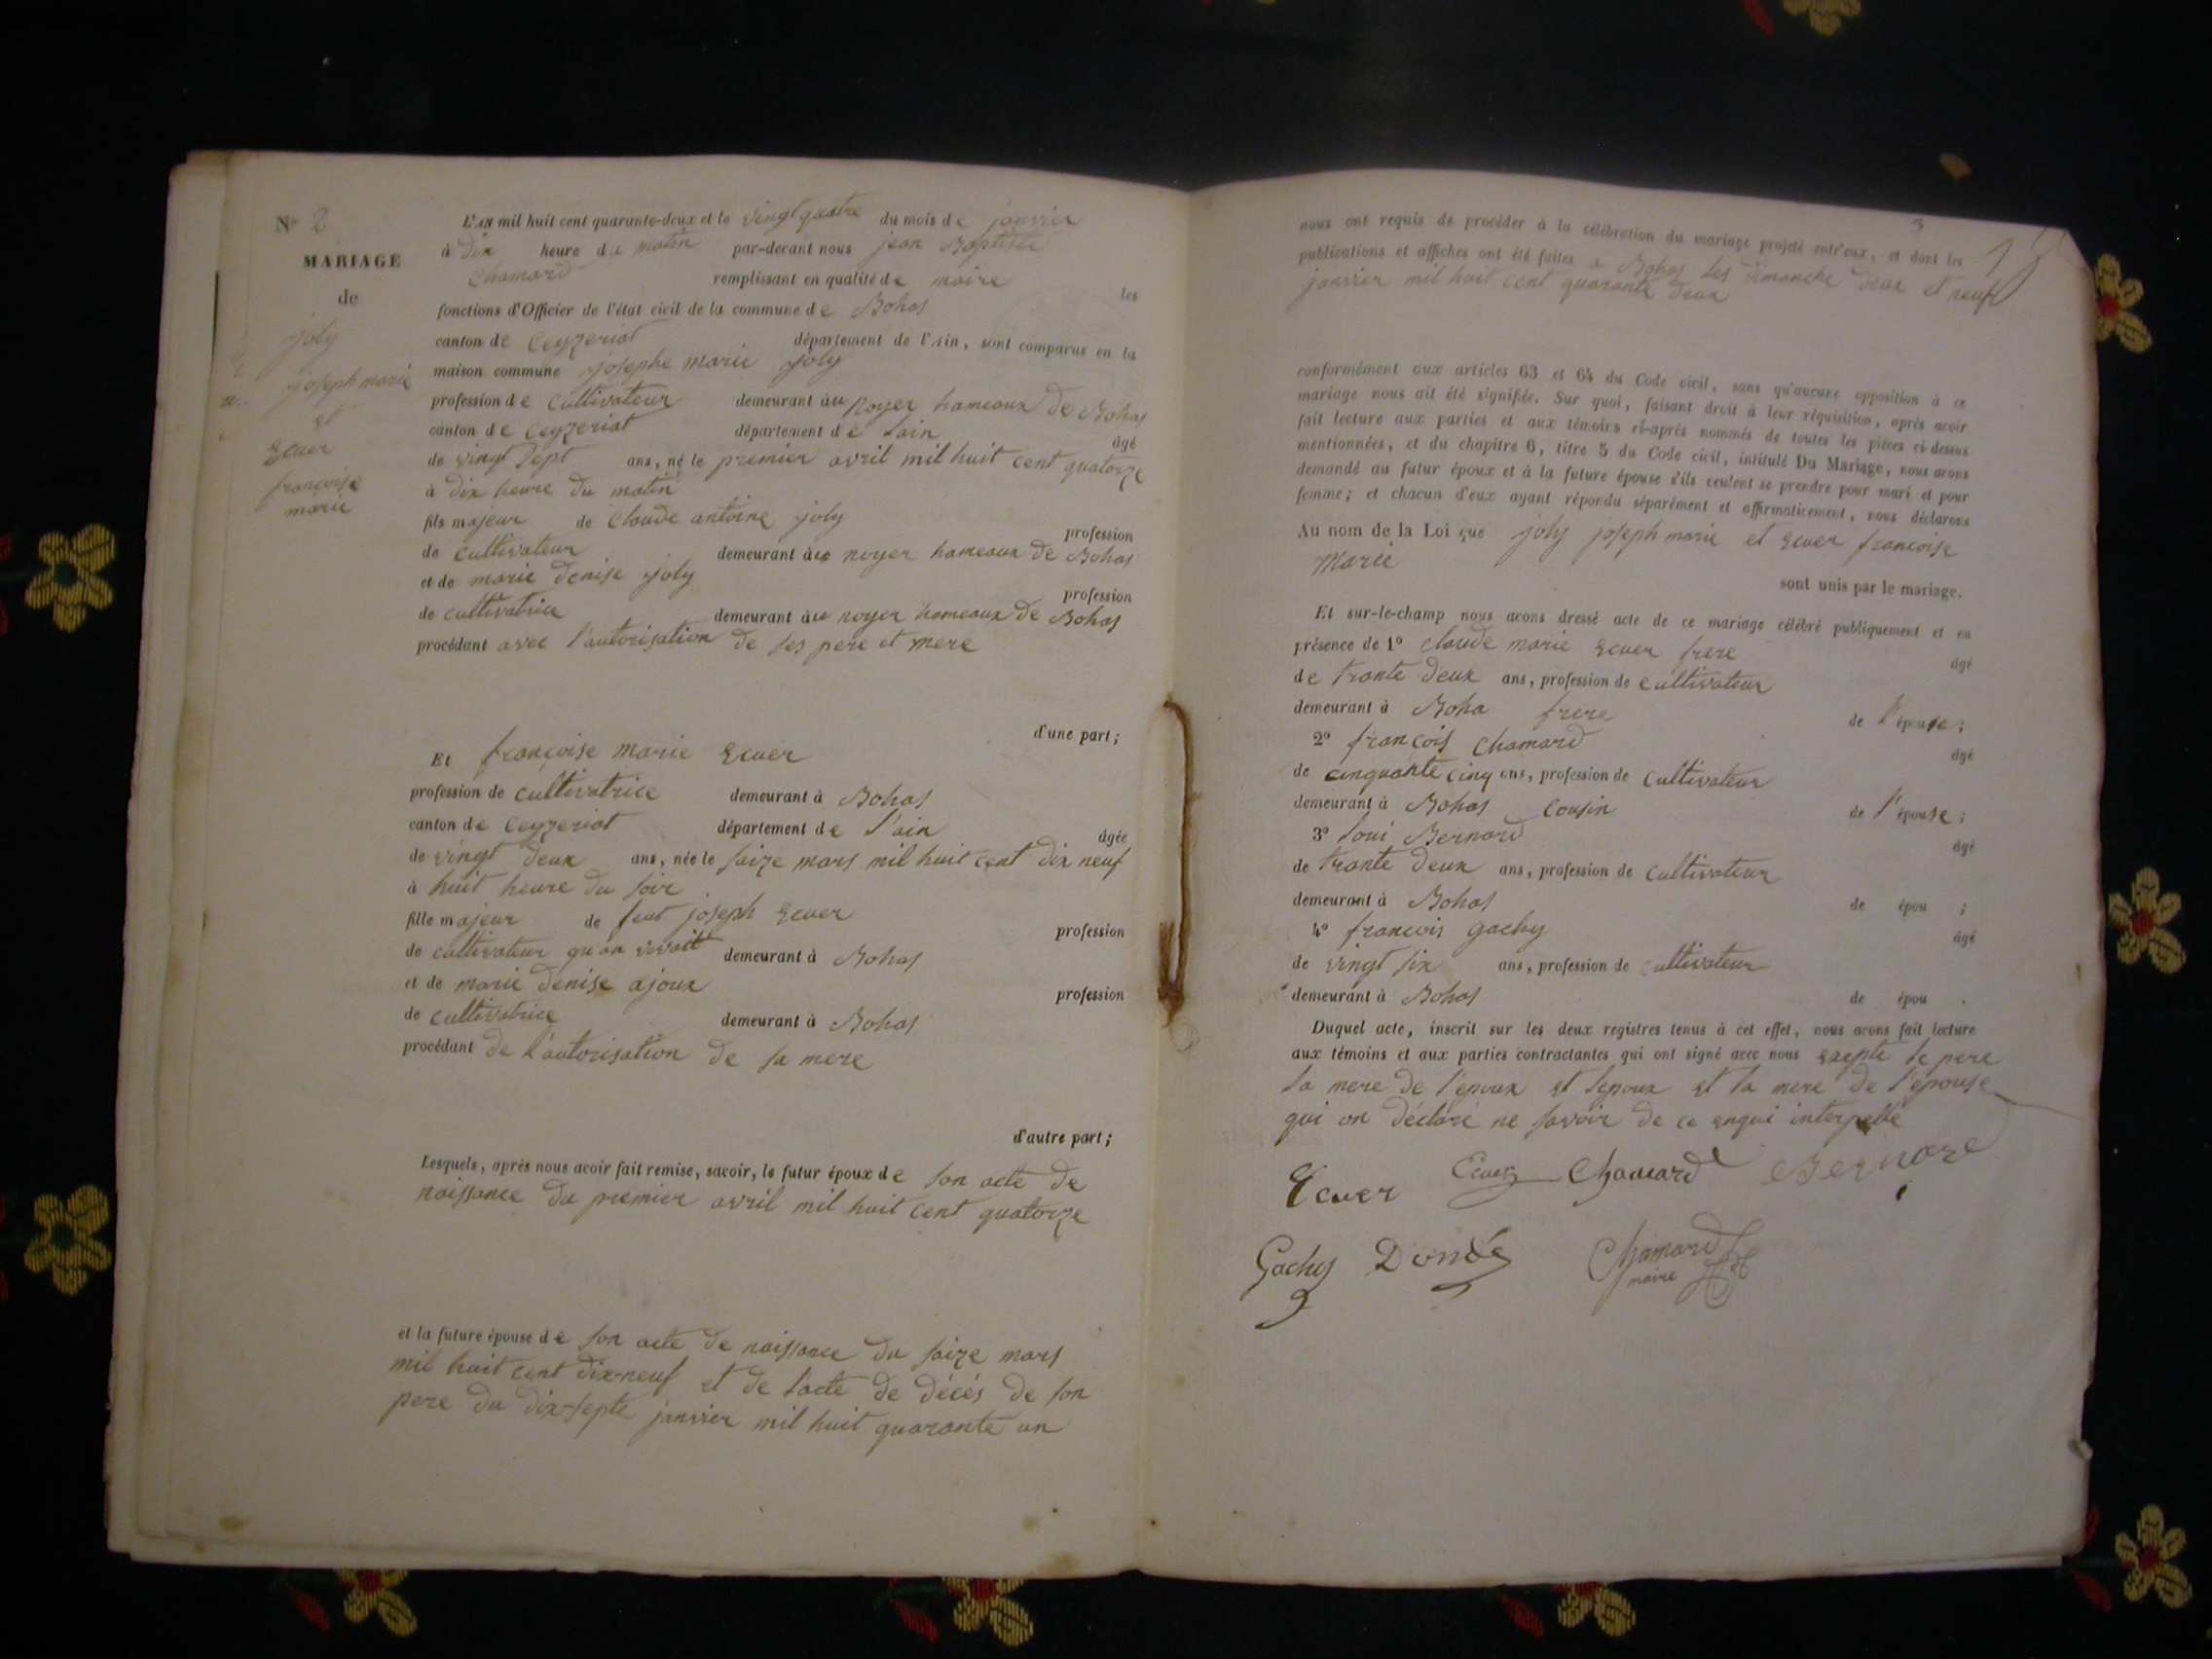 N° 2
MARIAGE
de
joly
joseph marie
et
Ecuer
françoise
marie
L'AN mil huit cent quarante-deux et le vingt quatre du mois de janvier
à dix heure du matin par-devant nous jean Baptiste
Chamard remplissant en qualité de maire les
fonctions d'Officier de l'état civil de la commune de Bohas
canton de Ceyzeriat département de l'Ain, sont comparus en la
maison commune josephe marie joly
profession de cultivateur demeurant àu Noyer hameaux de Bohas
canton de Ceyzeriat département de lain âgé
de vingt sept ans, né le premier avril mil huit cent quatorze
à dix heure du matin
fils majeur de Claude antoine joly profession
de cultivateur demeurant àu noyer hameaux de Bohas
et de marie denise joly profession
de cultivatrice demeurant àu noyer hameaux de Bohas
procédant avec l'autorisation de ses pere et mere
d'une part;
Et françoise marie Ecuer
profession de cultivatrice demeurant à Bohas
canton de Ceyzeriat département de l'ain âgée
de vingt deux ans, née le saize mars mil huit cent dix neuf
à huit heure du soir
fille majeur de feut joseph Ecuer profession
de cultivateur qu'an vivait demeurant à Bohas
et de marie denise ajoux profession
de cultivatrice demeurant à Bohas
procédant de l'autorisation de sa mere
d'autre part;
Lesquels, après nous avoir fait remise, savoir, le futur époux de son acte de
naissance du premier avril mil huit cent quatorze
et la future épouse de son acte de naissance du saize mars
mil huit cent dix-neuf et de l'acte de décés de son
pere du dix-septe janvier mil huit quarante un
3
nous ont requis de procéder à la célébration du mariage projeté entr'eux, et dont les
publications et affiches ont été faites a Bohas les dimanche deux et neuf
janvier mil huit cent quarante deux
conformément aux articles 63 et 64 du Code civil, sans qu'aucune opposition à ce
mariage nous ait été signifiée. Sur quoi, faisant droit à leur réquisition, après avoir
fait lecture aux parties et aux témoins ci-après nommés de toutes les pièces ci-dessus
mentionnées, et du chapitre 6, titre 5 du Code civil, intitulé Du Mariage, nous avons
demandé au futur époux et à la future épouse s'ils veulent se prendre pour mari et pour
femme; et chacun d'eux ayant répondu séparément et affirmativement, nous déclarons
Au nom de la Loi que joly joseph marie et Ecuer françoise
Marie
sont unis par le mariage.
Et sur-le-champ nous avons dressé acte de ce mariage célébré publiquement et en
présence de 1° Claude marie Ecuer frere âgé
de trante deux ans, profession de cultivateur
demeurant à Boha frere de l'épouse;
2° françois Chamard âgé
de cinquante cinq ans, profession de cultivateur
demeurant à Bohas cousin de l'épouse;
3° loui Bernard âgé
de trante deux ans, profession de cultivateur
demeurant à Bohas de épou ;
4° francois gachy âgé
de vingt six ans, profession de cultivateur
demeurant à Bohas de épou .
Duquel acte, inscrit sur les deux registres tenus à cet effet, nous avons fait lecture
aux témoins et aux parties contractantes qui ont signé avec nous exepté le pere
la mere de l'epoux et lepoux et la mere de l'epouse
qui on déclaré ne savoir de ce enqui interpellé
Ecuer Ecuer Chamard Bernard
Gachy Dondé Chamard
maire